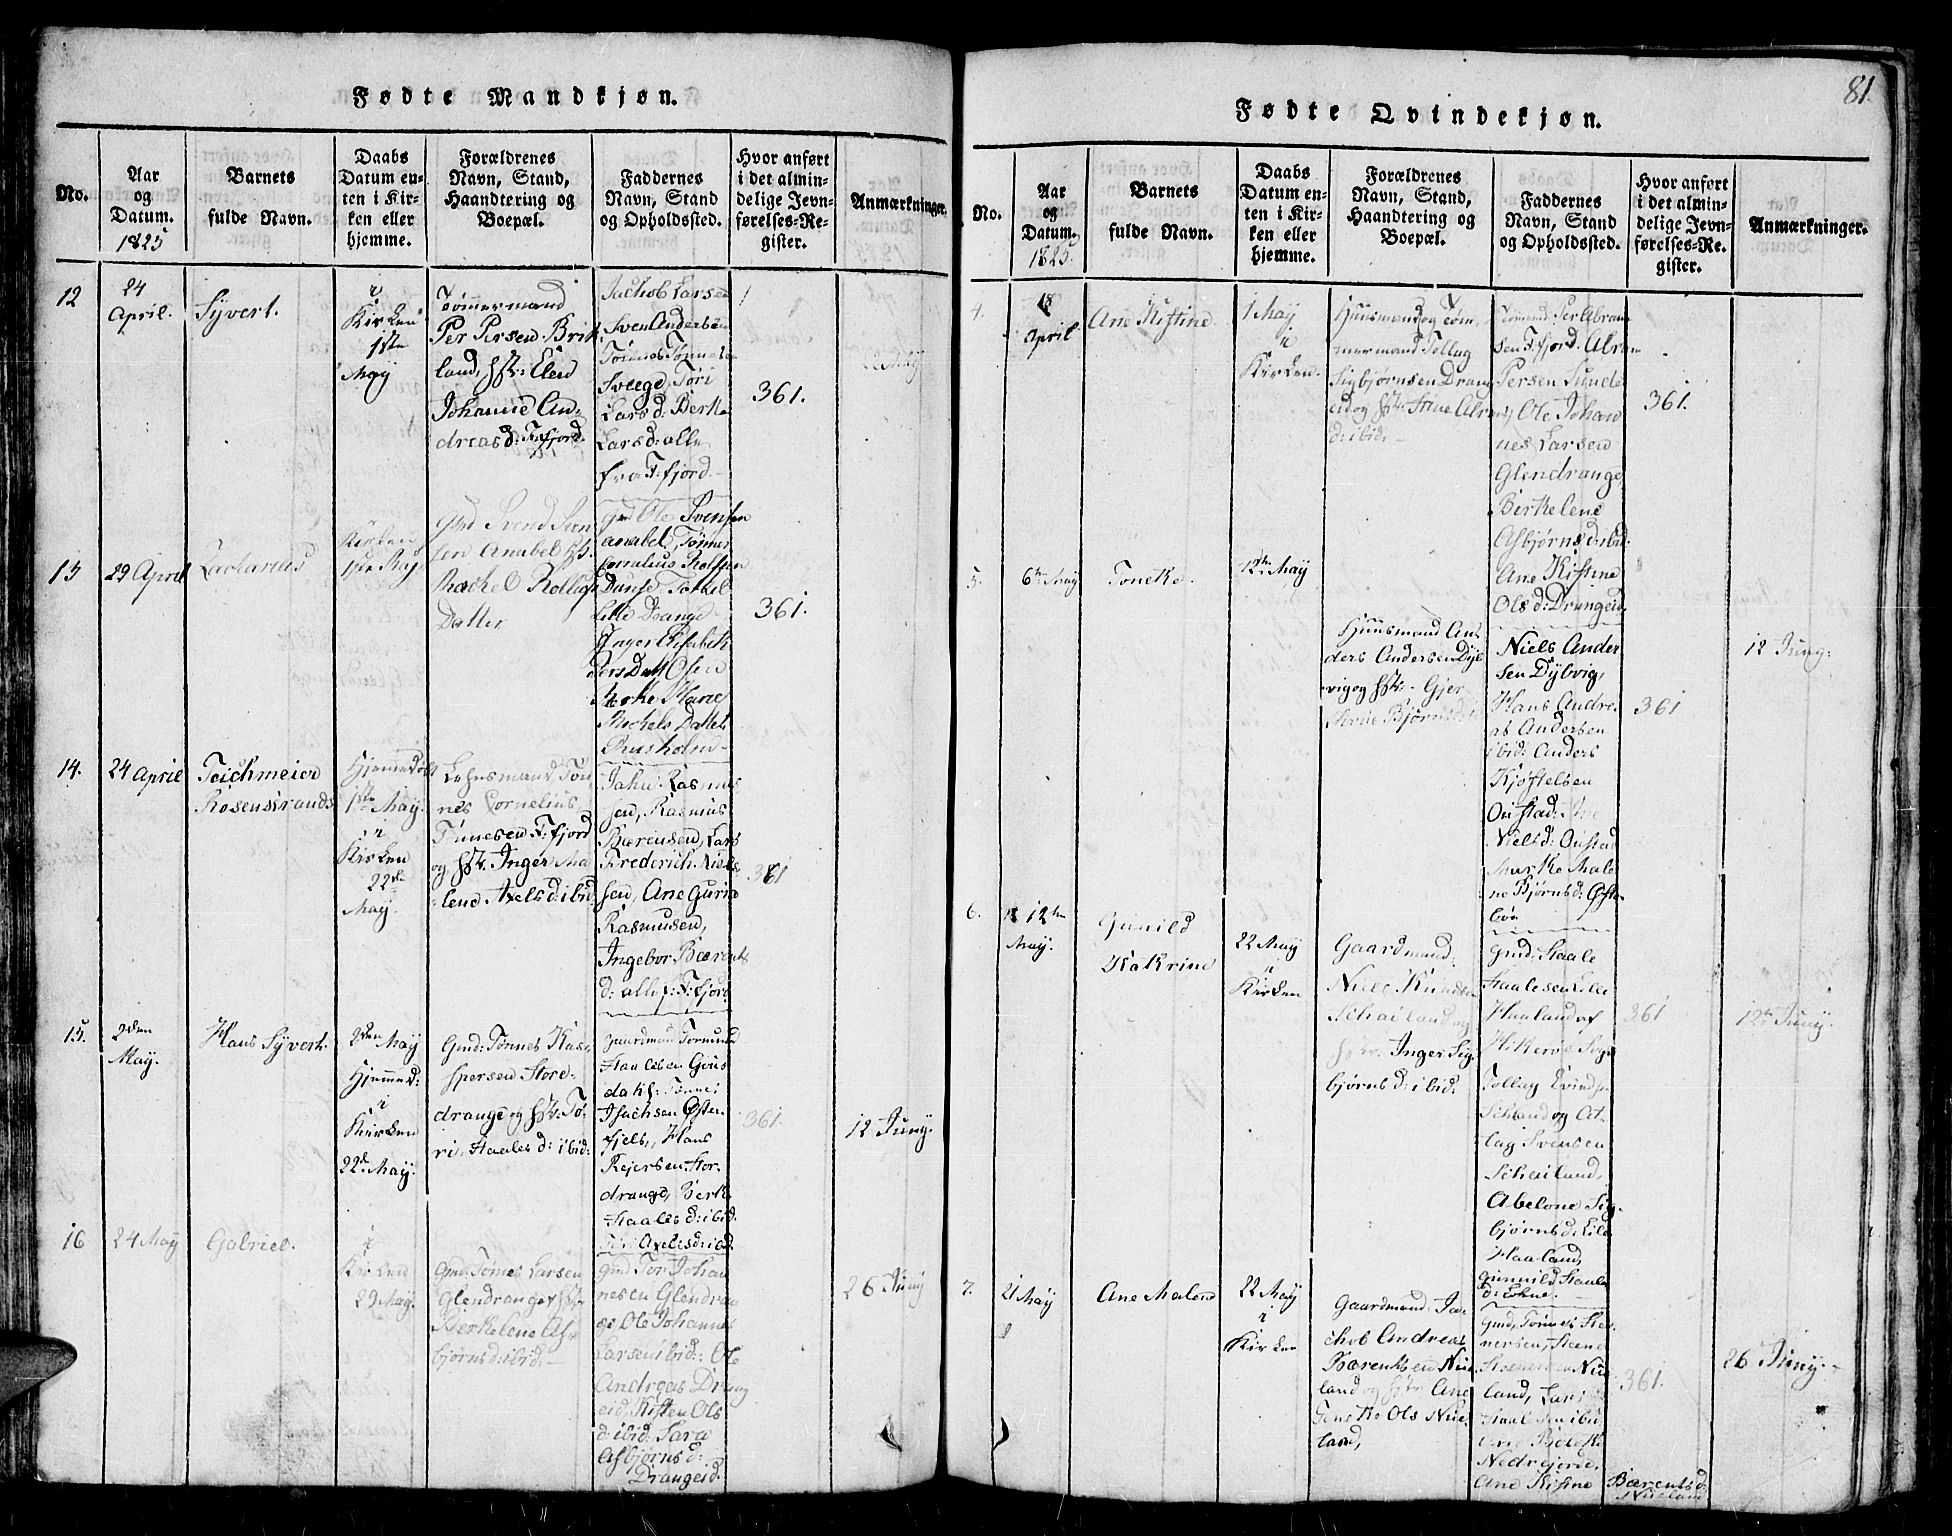 Fødte Mandkjøn.
No.
Aar
og
Datum.
1825
Barnets
fulde Navn.
Daabs
Datum en-
ten i Kir-
ken eller
hjemme.
Forældrenes
Navn, Stand,
Haandtering og
Boepæl.
Faddernes
Navn, Stand
og Opholdssted.
Hvor anført
i det almin-
delige Jevn-
førelses-Re-
gister.
Anmærkninger.
12
24
April.
Syvert.
i
Kirken
1ste
May
Tømmermand
Per Persen Brik
land, hstr: Elen
Johanne An-
dreasd: F:fjord.
Jachob Larsen
Sven Andersen
Tønnes
Svege, Tøri
Larsd: Berke
Larsd: alle
fra F:fjord
361.
13
29 April
Zacharias
Kirken
1ste May
Gmd Svend Svend
sen Anabel
Rachel Rollufs
Datter
Gmd Ole Svensen
Anabel, Tønnes
Cornelius Rolfsen
Torkel
Lille Drange
Inger Elisabeth
Pers Datt Osen
Marie
Datter
361.
14.
24 April
Teichmeier
Rosenstrands
Hjemmedøbt
1ste May.
i
Kirken
22de
May.
Lehnsmand Tøn
nes Cornelius
Tønnesen F:fjord
og hstr. Inger Ma
lene Axelsd: ibid:
Jahn Rasmus
sen, Rasmus
Bærensen, Lars
Frederich Niels
sen, Ane Guria
Rasmusen,
Ingebor Bærents
d: alle f: F:fjord
361
15.
2den
May.
Hans Syvert.
2den May
Hjemmed:
i
Kirken
22de May.
Gmd: Tønnes Kas-
persen Stor-
drange og hstr: Tø-
ri Staalesd: ibid:
Gaardmand Tormund
Staalesen
Tønnes
Isachsen Øster-
fjeld, Hans
Rejersen Stor-
drange, Berthe
Staalesd: ibid.
Tøri Axelsd: ibid.
361.
12 Juny.
16
24 May
Gabriel.
i
Kirken
29 May.
Gmd: Tønnes Larsen
Glendrange og hstr:
Berkelene As-
bjørnsd: ibid: —
Gmd Tor Johan
nesen Glendran
ge, Ole Johannes
Larsen ibid: Ole
Andreas Drang
eid: Kisten Ols
d: ibid: Sara
Asbjørnsd:
Drangeid.
26 Juny
81.
Fødte Qvindekjøn.
No.
Aar
og
Datum.
1825.
Barnets
fulde Navn.
Daabs
Datum en-
ten i Kir-
ken eller
hjemme.
Forældrenes
Navn, Stand,
Haandtering og
Boepæl.
Faddernes
Navn, Stand
og Opholdssted.
Hvor anført
i det almin-
delige Jevn-
førelses-Re-
gister.
Anmærkninger.
4.
18
April.
Ane Kistine.
1 May
i
Kirken.
Huusmand og Tøm-
mermand Tollag
Sigbjørnsen Drang
eid og hstr: Stine Abrams
d: ibid. —
Tømmd: Per Abram
sen F:fjord. Abram
Persen Lunde
Ole Johan
nes Larsen
Glendrange,
Berkelene
Asbjørnsd: ibid.
Ane Kistine
Olsd: Drangeid.
361.
5.
6te May
Toneke.
12te May
Huusmand An-
ders Andersen Dyb
vig og hstr: Gjer
Bjørnsd:
Niels Ander
sen Dybvig,
Hans Andre-
as Andersen
ibid: Anders
Kjøstelsen
Onstad:
Nielsd: Onstad
Marke Male
ne Bjørnsd: Øste
bøe
361
12 Juny:
6.
12te
May.
Gunild
Katrine
22 May
i
Kirken
Gaardmand:
Niels Knudsen
Schailand og
hstr: Inger Sig-
bjørnsd: ibid:
Gmd: Staale
Staalesen Lille
Haaland af
Sogn
Tollag Evindsen
og At-
lag Svensen
Schailand,
Abelone Sig-
bjørnsd: Lille
Haaland,
Gunnild Staale
d: Eckne.
361
12te Juny.
7.
21 May
Ane Malene
22 May
i
Kirken
Gaardmand: Ja-
chob Andreas
Bærentsen Nüe-
land og hstr: Ane
Tonette Ols Nüe-
land,
Gmd, Tønnes Ste-
nersen, Stene
Stenersen Nüe
land, Lars
Staalesen ibid
Nedrejorde.
Ane Kistine
Bærentsd:
Nüeland
361.
26 Juny.